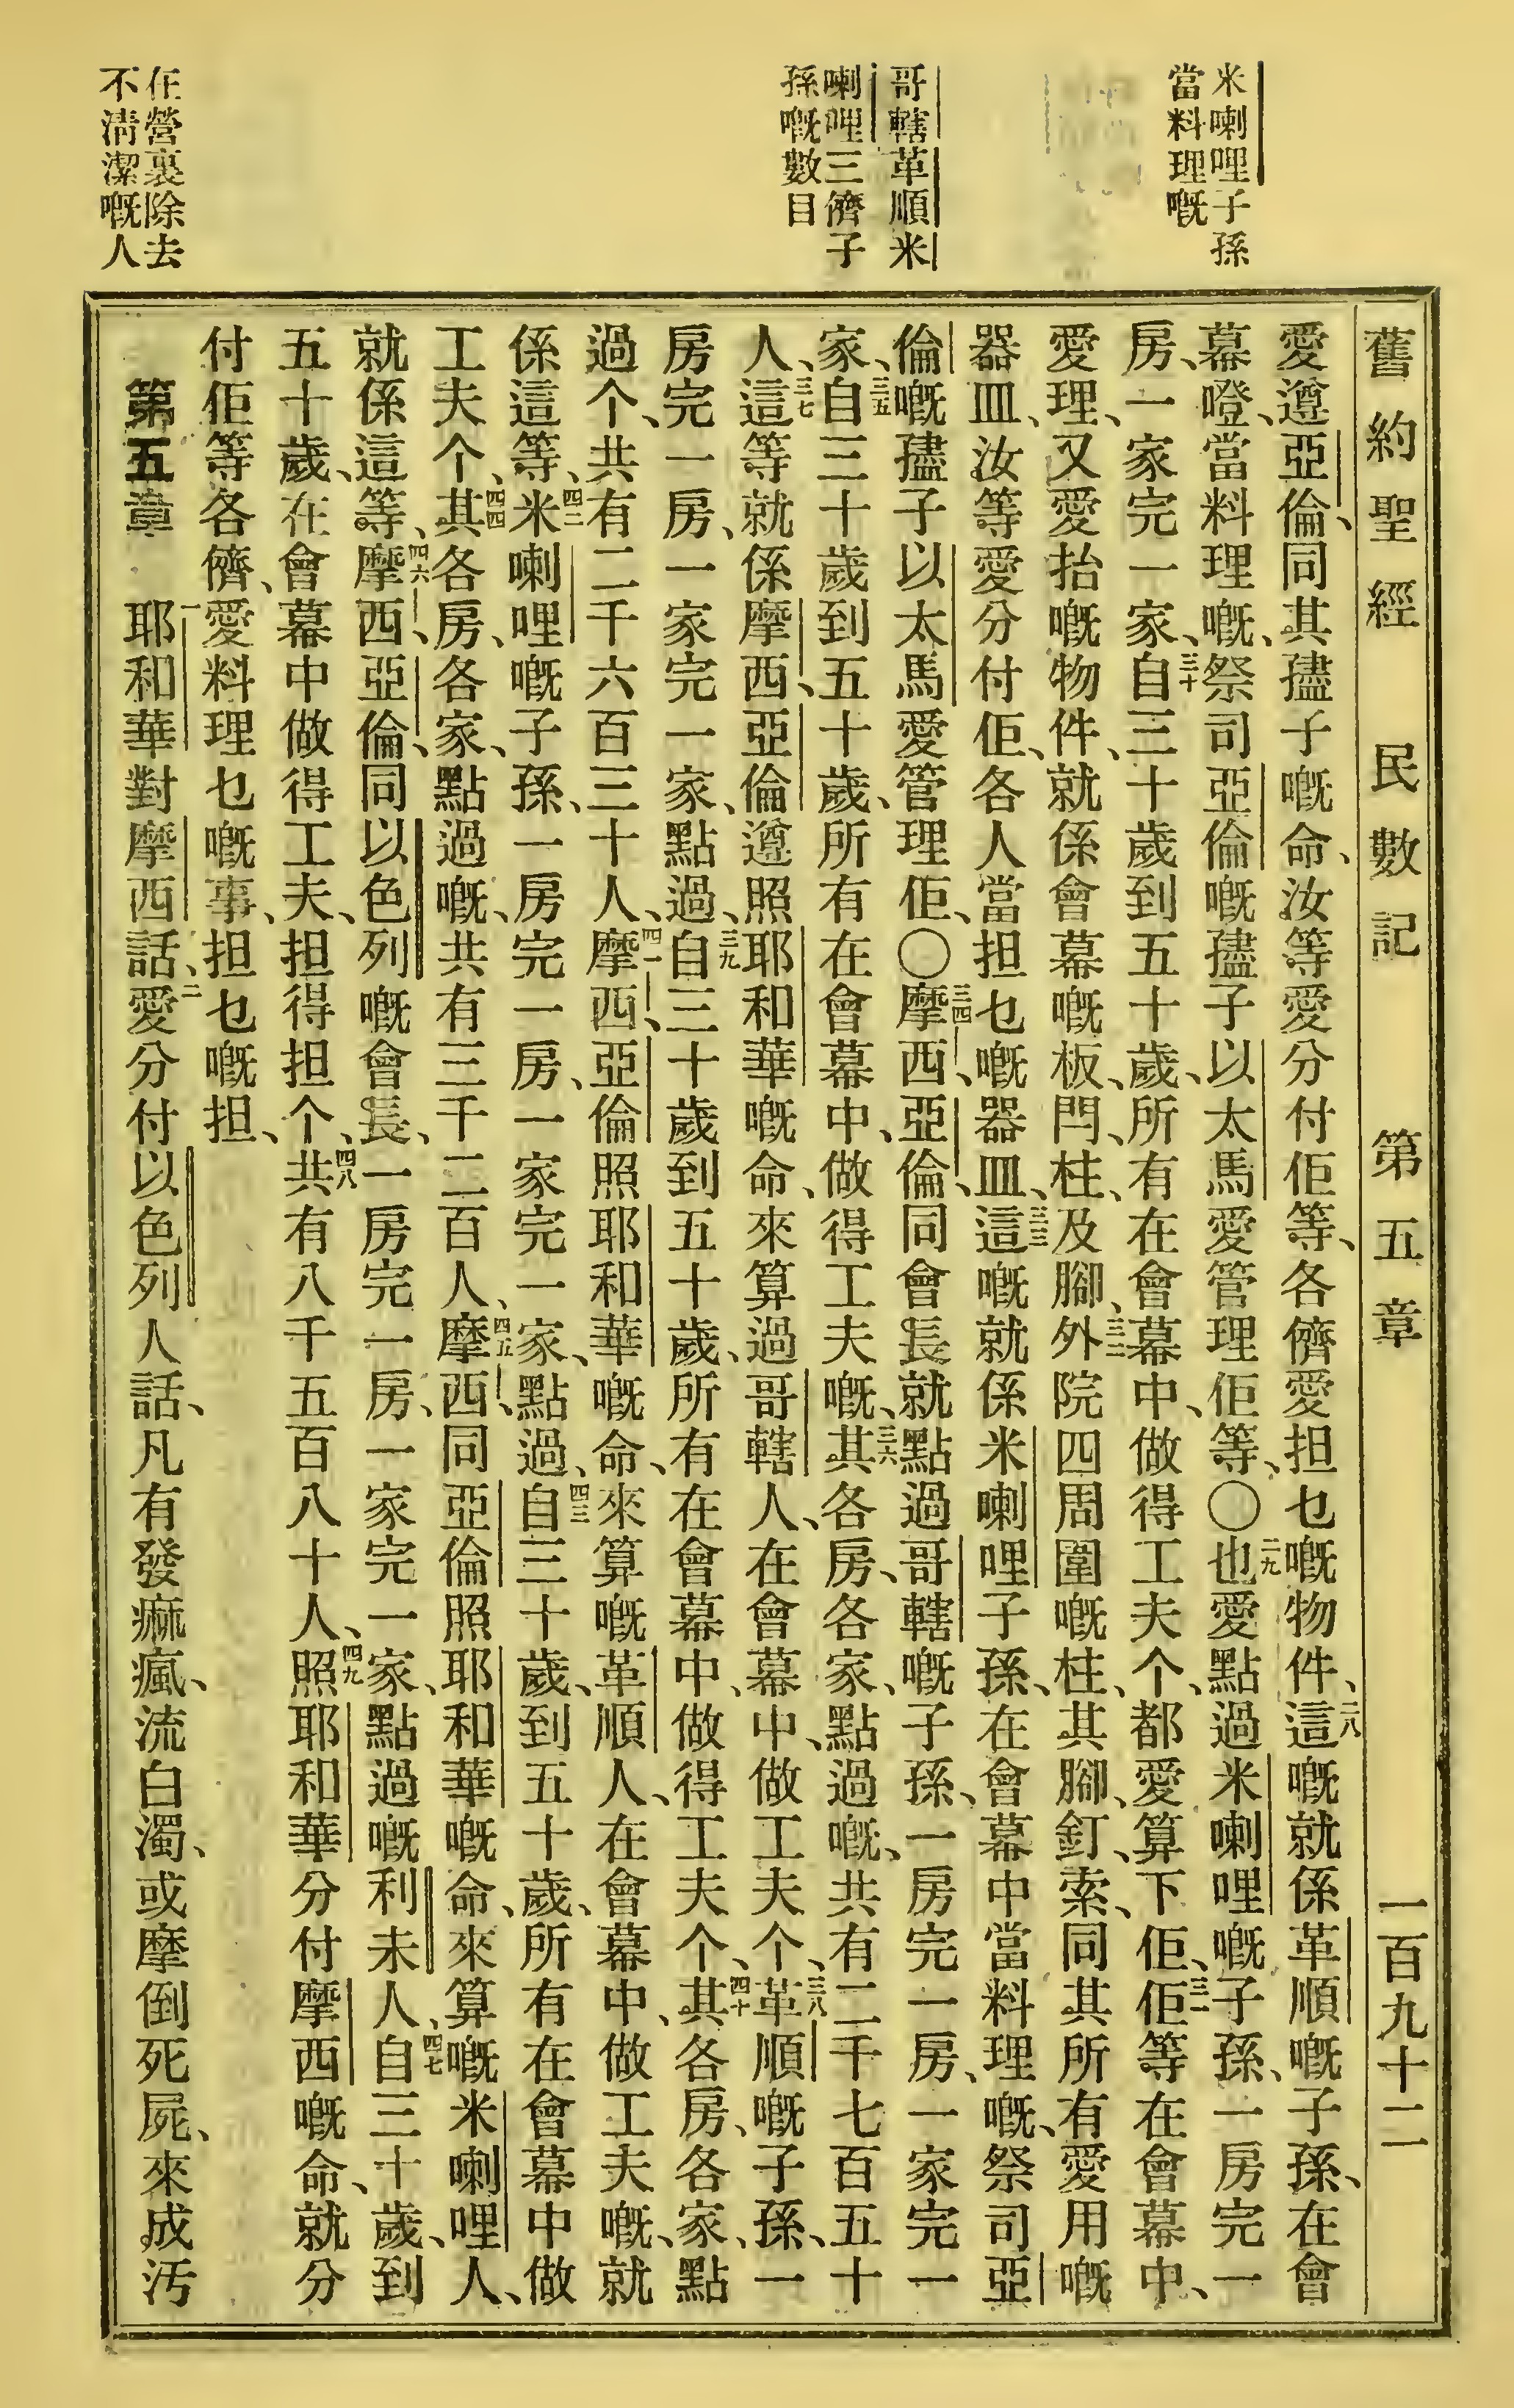 舊約聖經 民數記 第五章 一百九十二
米喇哩子孫
當料理嘅
哥轄革順米
喇哩三儕子
孫嘅數目
在營裏除去
不清潔嘅人
愛遵亞倫、同其孻子嘅命、汝等愛分付佢等、各儕愛担乜嘅物件、二八這嘅就係革順嘅子孫、在會
幕墱、當料理嘅、祭司亞倫嘅孻子以太馬愛管理佢等、〇二九也愛點過米喇哩嘅子孫、一房完一
房、一家完一家、三十自三十歲到五十歲、所有在會幕中、做得工夫个、都愛算下佢、三一佢等在會幕中、
愛理、又愛抬嘅物件、就係會幕嘅板、閂、柱、及腳、三二外院四周圍嘅柱、其腳、釘、索、同其所有愛用嘅
器皿、汝等愛分付佢、各人當担乜嘅器皿、三三這嘅就係米喇哩子孫、在會幕中當料理嘅、祭司亞
倫嘅孻子以太馬愛管理佢、〇三四摩西、亞倫、同會長就點過哥轄嘅子孫、一房完一房、一家完一
家、三五自三十歲到五十歲、所有在會幕中、做得工夫嘅、三六其各房、各家、點過嘅、共有二千七百五十
人、三七這等就係摩西、亞倫遵照耶和華嘅命、來算過哥轄人、在會幕中、做工夫个、三八革順嘅子孫、一
房完一房、一家完一家、點過、三九自三十歲到五十歲、所有在會幕中、做得工夫个、四十其各房、各家、點
過个、共有二千六百三十人、四一摩西、亞倫照耶和華嘅命、來算嘅革順人、在會幕中、做工夫嘅、就
係這等、四二米喇哩嘅子孫、一房完一房、一家完一家、點過、四三自三十歲到五十歲、所有在會幕中做
工夫个、四四其各房、各家、點過嘅、共有三千二百人、四五摩西、同亞倫照耶和華嘅命、來算嘅米喇哩人、
就係這等、四六摩西、亞倫、同以色列嘅會長、一房完一房、一家完一家、點過嘅利未人、四七自三十歲、到
五十歲、在會幕中做得工夫、担得担个、四八共有八千五百八十人、四九照耶和華分付摩西嘅命、就分
付佢等各儕、愛料理乜嘅事、担乜嘅担、
第五章 一耶和華對摩西話、二愛分付以色列人話、凡有發痲瘋、流白濁、或摩倒死屍、來成汚